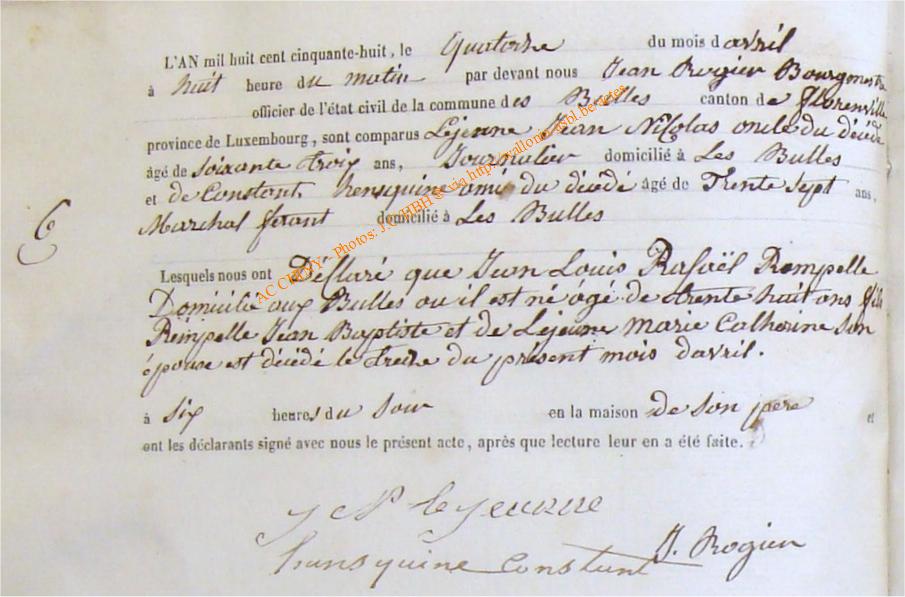 L'AN mil huit cent cinquante-huit, le Quatorze du mois d'avril
à huit heure du matin par devant nous Jean Rogier Bourgmestre
officier de l'état civil de la commune des Bulles canton de Florenville
province de Luxembourg, sont comparus Lejeune Jean Nicolas oncle du décédé
âgé de soixante troix ans, Journalier domicilié à Les Bulles
et de Constant Hensquine ami du décédé âgé de Trente sept ans,
Marchal ferant domicilié à Les Bulles
6
Lesquels nous ont Déclaré que Jean Louis Rafaël Rempelle
Domicilié aux Bulles ou il est né âgé de trente huit ans fils
Rempelle Jean Baptiste et de Lejeune Marie Catherine son
épouse est décédé le treize du présent mois d'avril.
à six heures du soir en la maison de son pere et
ont les déclarants signé avec nous le présent acte, après que lecture leur en a été faite.
J N lejeune
hansquine Constant J. Rogier
AC CHINY - Photos: J.C. HBH © via http://wallonia-asbl.be/actes